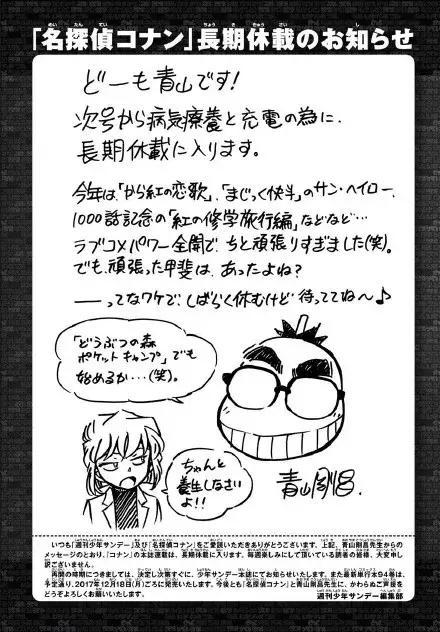 「名探偵コナン」長期休載のお知らせ
どーも青山です!
次号から病気療養と充電の為に、
長期休載に入ります。
今年は、「から紅の恋歌」、「まじっく快斗」のサン・ヘイロー、
1000話記念の「紅の修学旅行編」などなど…
ラブコメパワー全開で、ちと頑張りすぎました(笑)。
でも、頑張った甲斐は、あったよね?
――ってなワケで、しばらく休むけど、待っててね〜♪
「どうぶつの森
ポケットキャンプ」でも
始めるか…(笑)。
ちゃんと
養生しなさい
よ!!
青山剛昌
いつも「週刊少年サンデー」及び「名探偵コナン」をご愛顧いただきありがとうございます。上記、青山剛昌先生からの
メッセージのとおり、『コナン』の本誌連載は、長期休載に入ります。毎週楽しみにして頂いている読者の皆様、大変申し
訳ございません。
再開の時期につきましては、決定し次第すぐに、少年サンデー本誌にてお知らせいたします。また最新単行本94巻は、
予定通り、2017年12月18日(月)ごろに発売いたします。今後とも「名探偵コナン」と青山剛昌先生に、かわらぬご声援を
どうぞよろしくお願いいたします。
週刊少年サンデー編集部